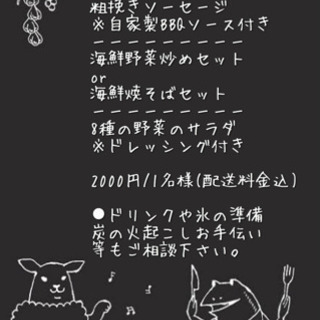 粗挽きソーセージ
※自家製BBQソース付き
ーーーーーーーーーー
海鮮野菜炒めセット
or
海鮮焼そばセット
ーーーーーーーーーー
8種の野菜のサラダ
※ドレッシング付き
2000円/1名様(配送料金込)
●ドリンクや氷の準備
炭の火起こしお手伝い
等もご相談下さい。